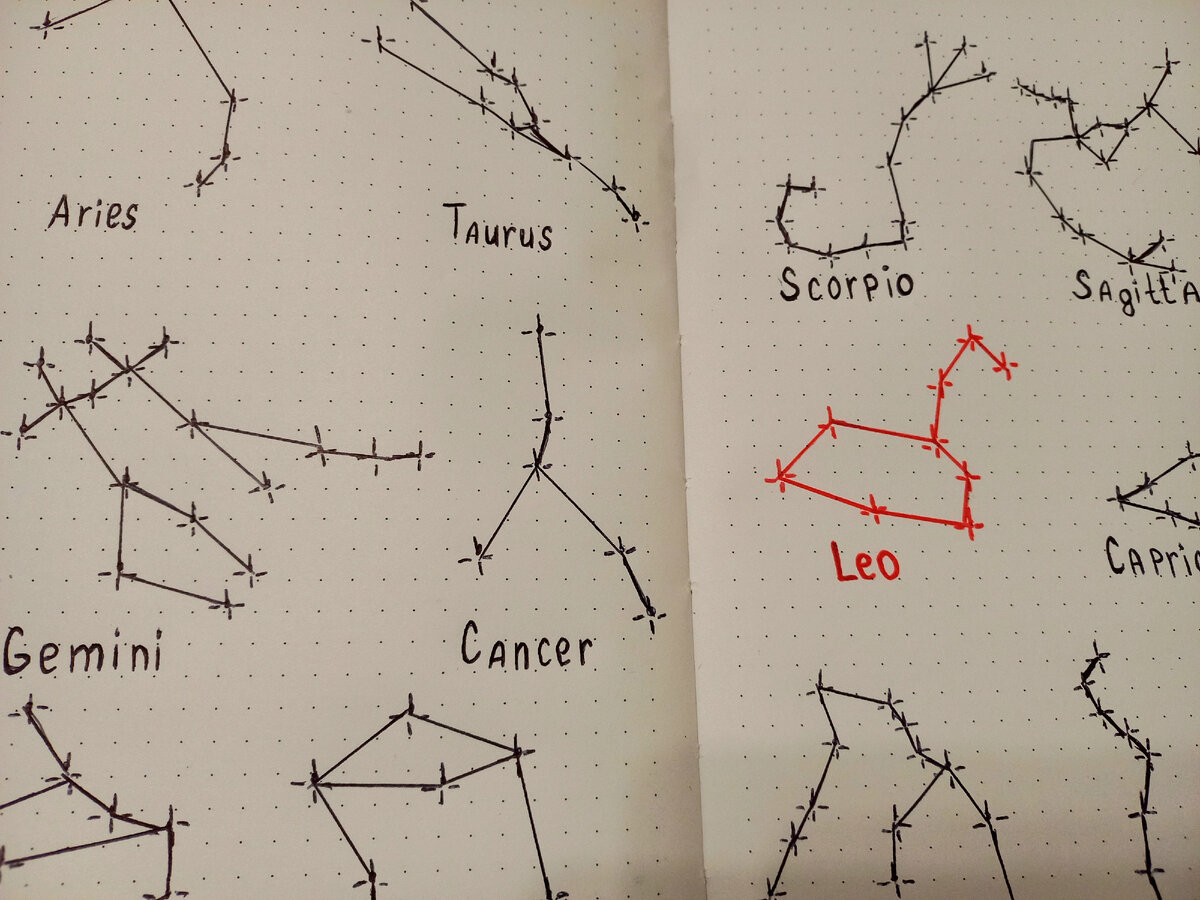 Aries
Taurus
Scorpio
Sagitta
Gemini
Cancer
Leo
Capric